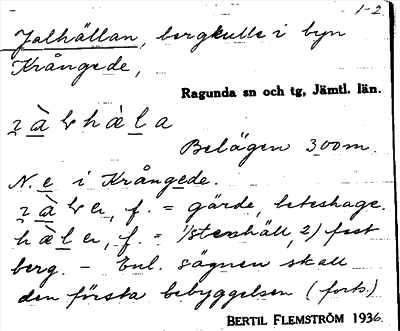 1-2
Jalhällan, bergkulle i byn
Krångede,
Ragunda sn och tg, Jämtl. län.
Belägen 300m.
N. e i Krångede.
f. = gärde, beteshage.
f. = 1/stenhäll, 2) fast
berg. - Enl. sägnen skall
den första bebyggelsen (forts.)
BERTIL FLEMSTRÖM 1936.